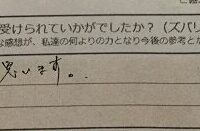 受けられていかがでしたか？（ズバリ
な感想が、私達の何よりの力となり今後の参考とな
思います。